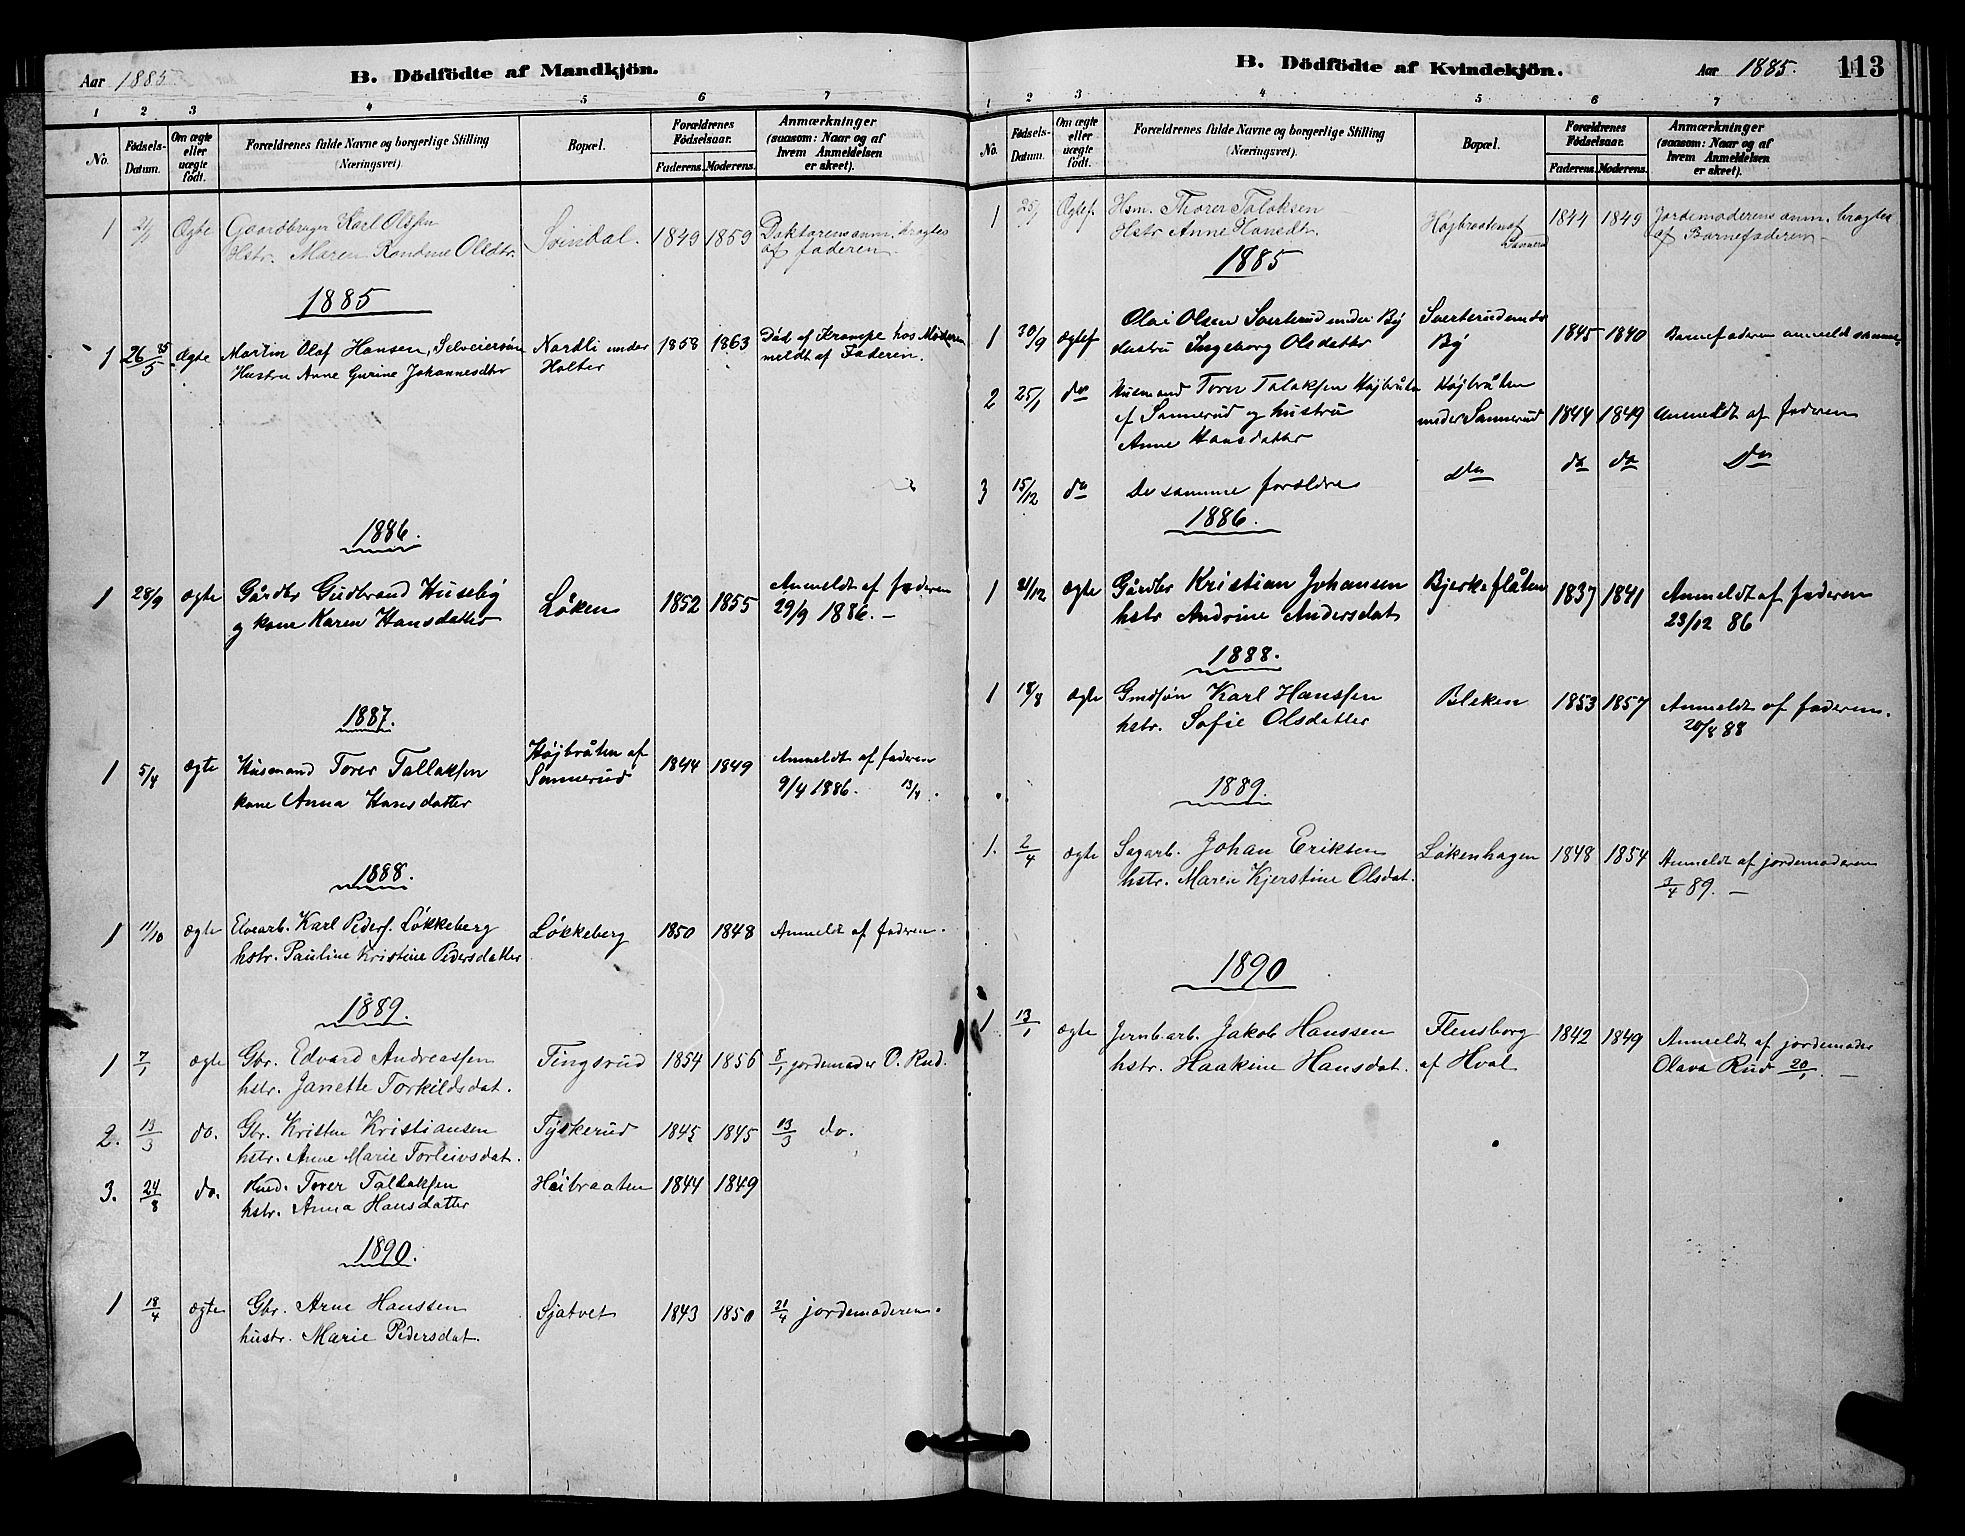 Aar 1885
B. Dödfödte af Mandkjön.
1 2 3 4 5 6 7
No.
Födsels-
Datum.
Om ægte
eller
uægte
födt.
Forældrenes fulde Navne og borgerlige Stilling
(Næringsvei).
Bopæl.
Forældrenes
Födselsaar.
Faderens. Moderens.
Anmærkninger
(saasom: Naar og af
hvem Anmeldelsen
er skeet).
1 2/1 Ægte Gaardbruger Karl Olssen Svindal. 1849 1859 Doktorens anm. bragtes
Hstr. Maren Randine Olsdtr. af faderen.
1885
1 26/5 85 Ægte Martin Olaf Hansen, Selveiersøn Nordli under 1858 1863 Død af Krampe hos Moderen
Hustru Anne Gurine Johannesdtr Holter meldt af Faderen.
1886.
1 28/9 ægte Gårdbr Gudbrand Huseby Løken 1852 1855 Anmeldt af faderen
og kone Karen Hansdatter 29/9 1886. —
1887.
1 5/4 ægte Husmand Torer Tallaksen Højbråten af 1844 1849 Anmeldt af faderen
kone Anna Hansdatter Sannerud 9/4 1886. 13/4.
1888.
1 11/10 ægte Elvearb. Karl Peders. Løkkeberg Løkkeberg 1850 1848 Anmeldt af faderen.
hstr. Pauline Kristine Pedersdatter
1889.
1 7/1 ægte Gbr. Edvard Andreassen Tingsrud 1854 1856 8/1 jordemoder O. Rud.
hstr. Janette Torkildsdat.
2. 13/3 do. Gbr. Kristen Kristiansen Tyskerud 1845 1845 13/3 do.
hstr. Anne Marie Torleivsdat.
3. 24/8 do. Hmd. Torer Tallaksen Høibraaten 1844 1849
hstr. Anna Hansdatter
1890.
1 18/4 ægte Gbr. Arne Hanssen Sjatvet 1843 1850 21/4 jordemoderen.
hustr. Marie Pedersdat.
B. Dödfödte af Kvindekjön.
Aar 1885. 113
1 2 3 4 5 6 7
No.
Födsels-
Datum.
Om ægte
eller
uægte
födt.
Forældrenes fulde Navne og borgerlige Stilling
(Næringsvei).
Bopæl.
Forældrenes
Födselsaar.
Faderens. Moderens.
Anmærkninger
(saasom: Naar og af
hvem Anmeldelsen
er skeet).
1 25/1 Ægtef Hsm. Thorer Talaksen Højbraaten af 1844 1849 Jordemoderens anm. bragtes
Hstr Anne Hansdtr. Sannerud af Barnefaderen —
1885
1 30/9 ægtef Olai Olsen Sverterud under By Sverterud under 1845 1840 Barnefaderen anmeldt
Hustru Ingeborg Olsdatter By
2 25/1 do Husmand Torer Talaksen Højbråten Højbråten
af Sannerud og hustru under Sannerud 1844 1849 Anmeldt af faderen
Anne Hansdatter
3 15/12 do De samme forældre do do do Do
1886.
1 21/12 ægte Gårdbr Kristian Johansen Bjerkeflåten 1837 1841 Anmeldt af faderen
hstr Andrine Andersdat 23/12 86
1888.
1 18/8 ægte Gmdsøn Karl Hanssen Bleken 1853 1857 Anmeldt af faderen.
hstr. Sofie Olsdatter 20/8 88
1889.
1. 2/4 ægte Sagarb. Johan Eriksen Løkenhagen 1848 1854 Anmeldt af jordemoderen
hstr. Maren Kjerstine Olsdat. 3/4 89. —
1890
1 13/1 ægte Jernb.arb. Jakob Hanssen Flensborg 1842 1849 Anmeldt af jordemoder
hstr. Haakine Hansdat. af Hval Olava Rud 20/1. —